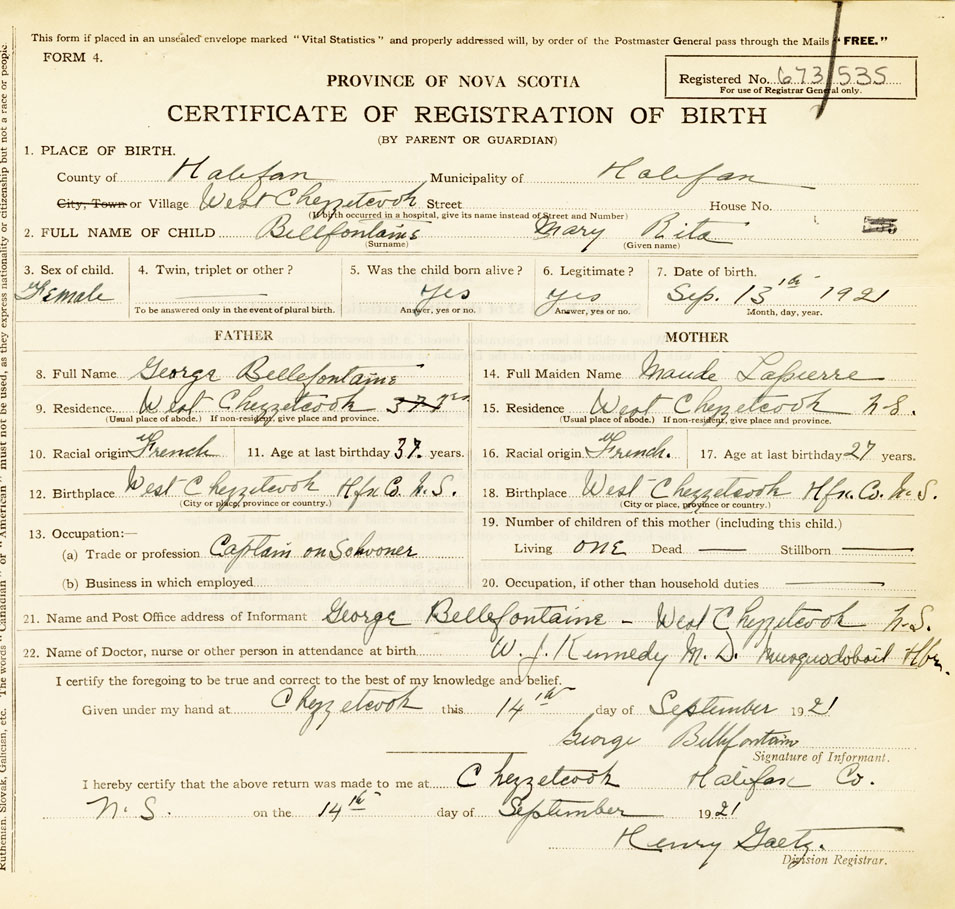 This form if placed in an unsealed envelope marked "Vital Statistics" and properly addressed will, by order of the Postmaster General pass through the Mails "FREE."
FORM 4.
PROVINCE OF NOVA SCOTIA
Registered No. 673535
For use of Registrar General only.
CERTIFICATE OF REGISTRATION OF BIRTH
(BY PARENT OR GUARDIAN)
1. PLACE OF BIRTH.
County of Halifax Municipality of Halifax
City, Town or Village West Chezzetcook Street House No.
(If birth occurred in a hospital, give its name instead of Street and Number)
2. FULL NAME OF CHILD Bellefontaine Mary Rita
(Surname) (Given name)
3. Sex of child. 4. Twin, triplet or other? 5. Was the child born alive? 6. Legitimate? 7. Date of birth.
Female yes yes Sep. 13th 1921
To be answered only in the event of plural birth. Answer, yes or no. Answer, yes or no. Month, day, year.
FATHER MOTHER
8. Full Name George Bellefontaine 14. Full Maiden Name Maude Lapierre
9. Residence West Chezzetcook 37 yrs 15. Residence West Chezzetcook N.S.
(Usual place of abode.) If non-resident, give place and province. (Usual place of abode.) If non-resident, give place and province.
10. Racial origin French 11. Age at last birthday 37 years. 16. Racial origin French. 17. Age at last birthday 27 years.
12. Birthplace West Chezzetcook Hfx Co. N.S. 18. Birthplace West Chezzetcook Hfx. Co. N.S.
(City or place, province or country.) (City or place, province or country.)
13. Occupation:— 19. Number of children of this mother (including this child.)
(a) Trade or profession Captain on Schooner Living one Dead — Stillborn —
(b) Business in which employed 20. Occupation, if other than household duties —
21. Name and Post Office address of Informant George Bellefontaine - West Chezzetcook N.S.
22. Name of Doctor, nurse or other person in attendance at birth W. J. Kennedy M.D. Musquodoboit Hbr.
I certify the foregoing to be true and correct to the best of my knowledge and belief.
Given under my hand at Chezzetcook this 14th day of September 1921
George Bellefontain
Signature of Informant.
I hereby certify that the above return was made to me at Chezzetcook Halifax Co.
N.S. on the 14th day of September 1921
Henry Gaetz.
Division Registrar.
Ruthenian, Slovak, Galician, etc. The words "Canadian" or "American" must not be used, as they express nationality or citizenship but not a race or people.